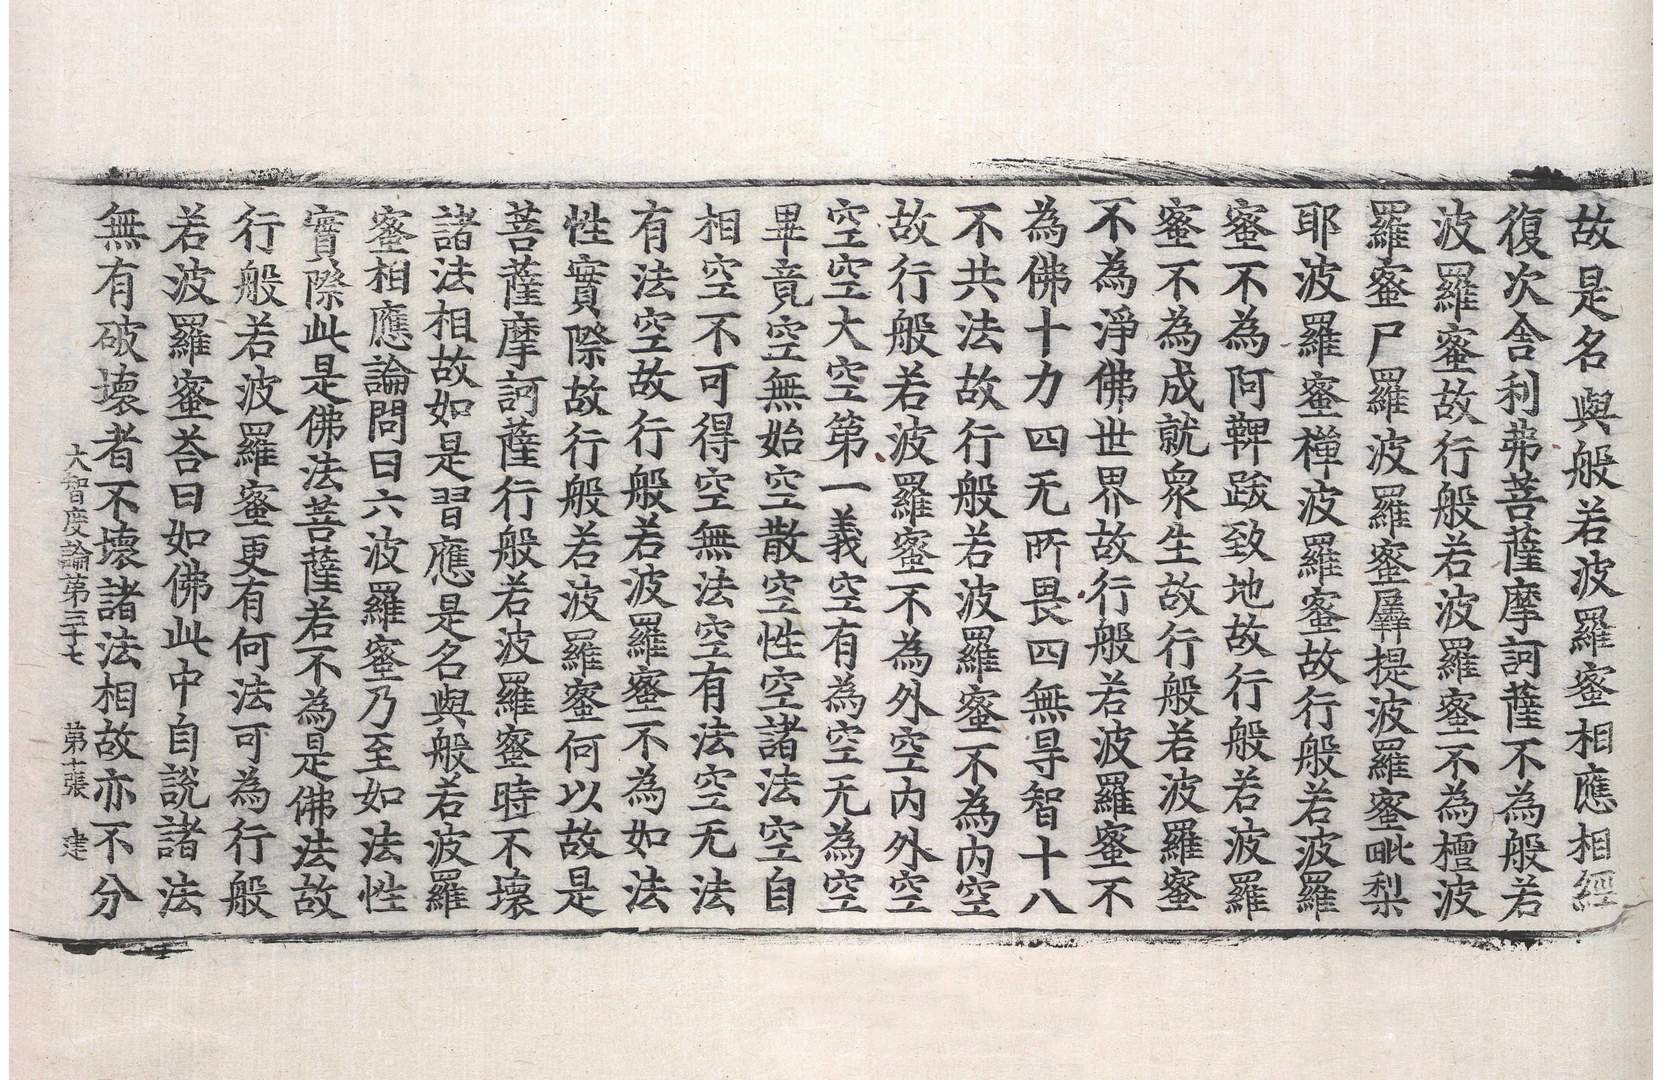 故是名與般若波羅蜜相應相經
復次舍利弗菩薩摩訶薩不為般若
波羅蜜故行般若波羅蜜不為檀波
羅蜜尸羅波羅蜜羼提波羅蜜毗梨
耶波羅蜜禪波羅蜜故行般若波羅
蜜不為阿鞞跋致地故行般若波羅
蜜不為成就衆生故行般若波羅蜜
不為淨佛世界故行般若波羅蜜不
為佛十力四无所畏四無㝵智十八
不共法故行般若波羅蜜不為内空
故行般若波羅蜜不為外空内外空
空空大空第一義空有為空无為空
畢竟空無始空散空性空諸法空自
相空不可得空無法空有法空无法
有法空故行般若波羅蜜不為如法
性實際故行般若波羅蜜何以故是
菩薩摩訶薩行般若波羅蜜時不壞
諸法相故如是習應是名與般若波羅
蜜相應論問曰六波羅蜜乃至如法性
實際此是佛法菩薩若不為是佛法故
行般若波羅蜜更有何法可為行般
若波羅蜜荅曰如佛此中自說諸法
無有破壞者不壞諸法相故亦不分
大智度論第三十七 第十張 建